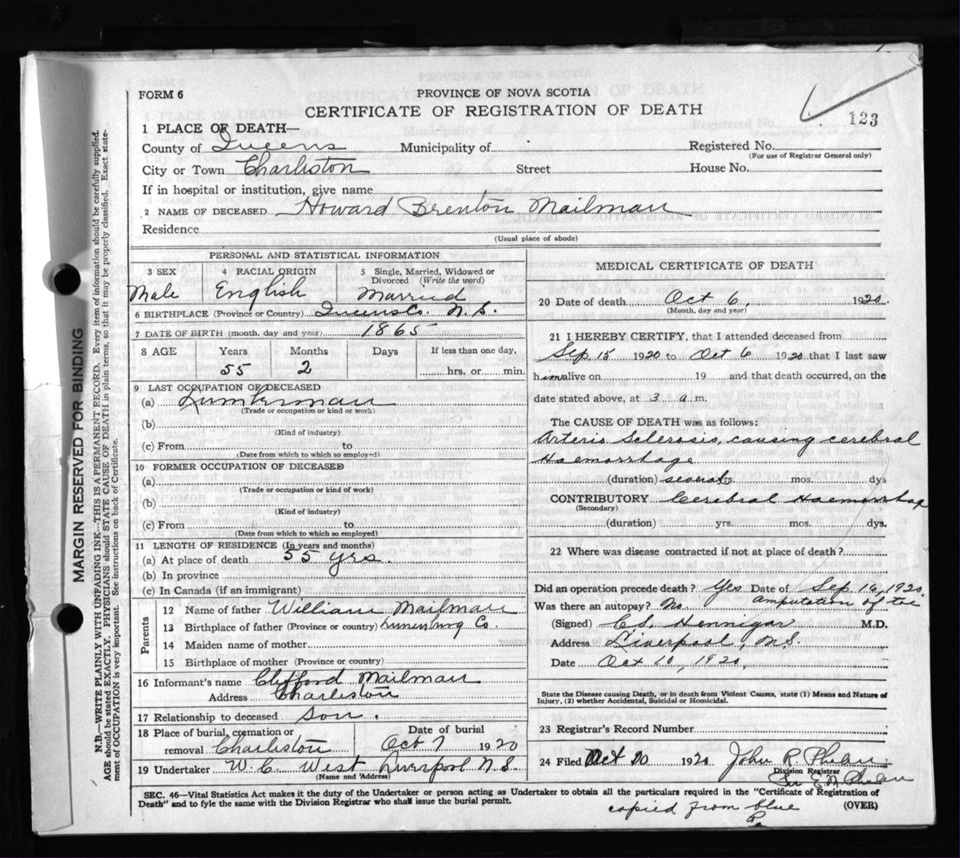 FORM 6
PROVINCE OF NOVA SCOTIA
CERTIFICATE OF REGISTRATION OF DEATH
123
1 PLACE OF DEATH—
County of Queens Municipality of Registered No.
(For use of Registrar General only)
City or Town Charliston Street House No.
If in hospital or institution, give name
2 NAME OF DECEASED Howard Brenton Mailman
Residence
(Usual place of abode)
PERSONAL AND STATISTICAL INFORMATION
3 SEX 4 RACIAL ORIGIN 5 Single, Married, Widowed or Divorced (Write the word)
Male English Married
6 BIRTHPLACE (Province or Country) Queens Co. N.S.
7 DATE OF BIRTH (month, day and year) 1865
8 AGE Years Months Days If less than one day,
55 2 hrs. or min.
9 LAST OCCUPATION OF DECEASED
(a) Lumberman
(Trade or occupation or kind or work)
(b)
(Kind of industry)
(c) From to
(Date from which to which so employed)
10 FORMER OCCUPATION OF DECEASED
(a)
(Trade or occupation or kind of work)
(b)
(Kind of industry)
(c) From to
(Date from which to which so employed)
11 LENGTH OF RESIDENCE (In years and months)
(a) At place of death 55 yrs.
(b) In province
(c) In Canada (if an immigrant)
Parents
12 Name of father William Mailman
13 Birthplace of father (Province or country) Lunenburg Co.
14 Maiden name of mother
15 Birthplace of mother (Province or country)
16 Informant's name Clifford Mailman
Address Charliston
17 Relationship to deceased Son.
18 Place of burial, cremation or removal Charliston
Date of burial Oct 7 1920
19 Undertaker W. C. West Liverpool N.S.
(Name and Address)
MEDICAL CERTIFICATE OF DEATH
20 Date of death Oct 6, 1920.
(Month, day and year)
21 I HEREBY CERTIFY, that I attended deceased from
Sep. 15 1920 to Oct 6 1920 that I last saw
him alive on 19 and that death occurred, on the
date stated above, at 3 a.m.
The CAUSE OF DEATH was as follows:
Arterio Sclerosis, causing cerebral
Haemorrhage
(duration) several yrs. mos. dys
CONTRIBUTORY Cerebral Haemorrhage
(Secondary)
(duration) yrs. mos. dys.
22 Where was disease contracted if not at place of death?
Did an operation precede death? Yes Date of Sep. 16, 1920.
Was there an autopsy? No. Amputation of toe
(Signed) Hennigar M.D.
Address Liverpool, N.S.
Date Oct 10, 1920.
State the Disease causing Death, or in death from Violent Causes, state (1) Means and Nature of
Injury, (2) whether Accidental, Suicidal or Homicidal.
23 Registrar's Record Number
24 Filed Oct 20 1920 John R. Phelan
Division Registrar
Phelan
SEC. 46—Vital Statistics Act makes it duty of the Undertaker or person acting as Undertaker to obtain all the particulars required in the "Certificate of Registration of
Death" and to fyle the same with the Division Registrar who shall issue the burial permit. (OVER)
copied from blue
MARGIN RESERVED FOR BINDING
N.B.—WRITE PLAINLY WITH UNFADING INK—THIS IS A PERMANENT RECORD. Every item of information should be carefully supplied.
AGE should be stated EXACTLY. PHYSICIANS should STATE CAUSE OF DEATH in plain terms, so that it may be properly classified. Exact state-
ment of OCCUPATION is very important. See instructions on back of Certificate.